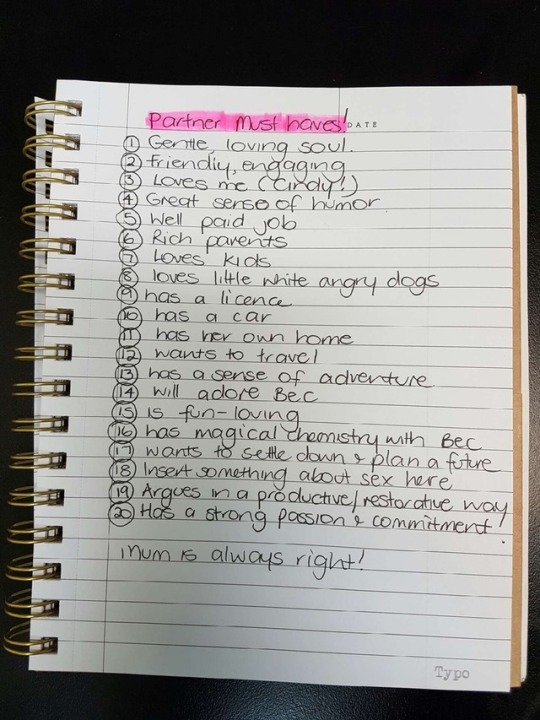 Partner Must haves!
DATE
① Gentle, loving soul.
② friendly, engaging
③ Loves me (Cindy!)
④ Great sense of humor.
⑤ Well paid job
⑥ Rich parents
⑦ Loves kids
⑧ loves little white angry dogs
⑨ has a licence
⑩ has a car
⑪ has her own home
⑫ wants to travel
⑬ has a sense of adventure
⑭ will adore Bec
⑮ is fun-loving
⑯ has magical chemistry with Bec
⑰ wants to settle down & plan a future
⑱ Insert something about sex here
⑲ Argues in a productive/restorative way
⑳ Has a strong passion & commitment!
Mum is always right!
Typo